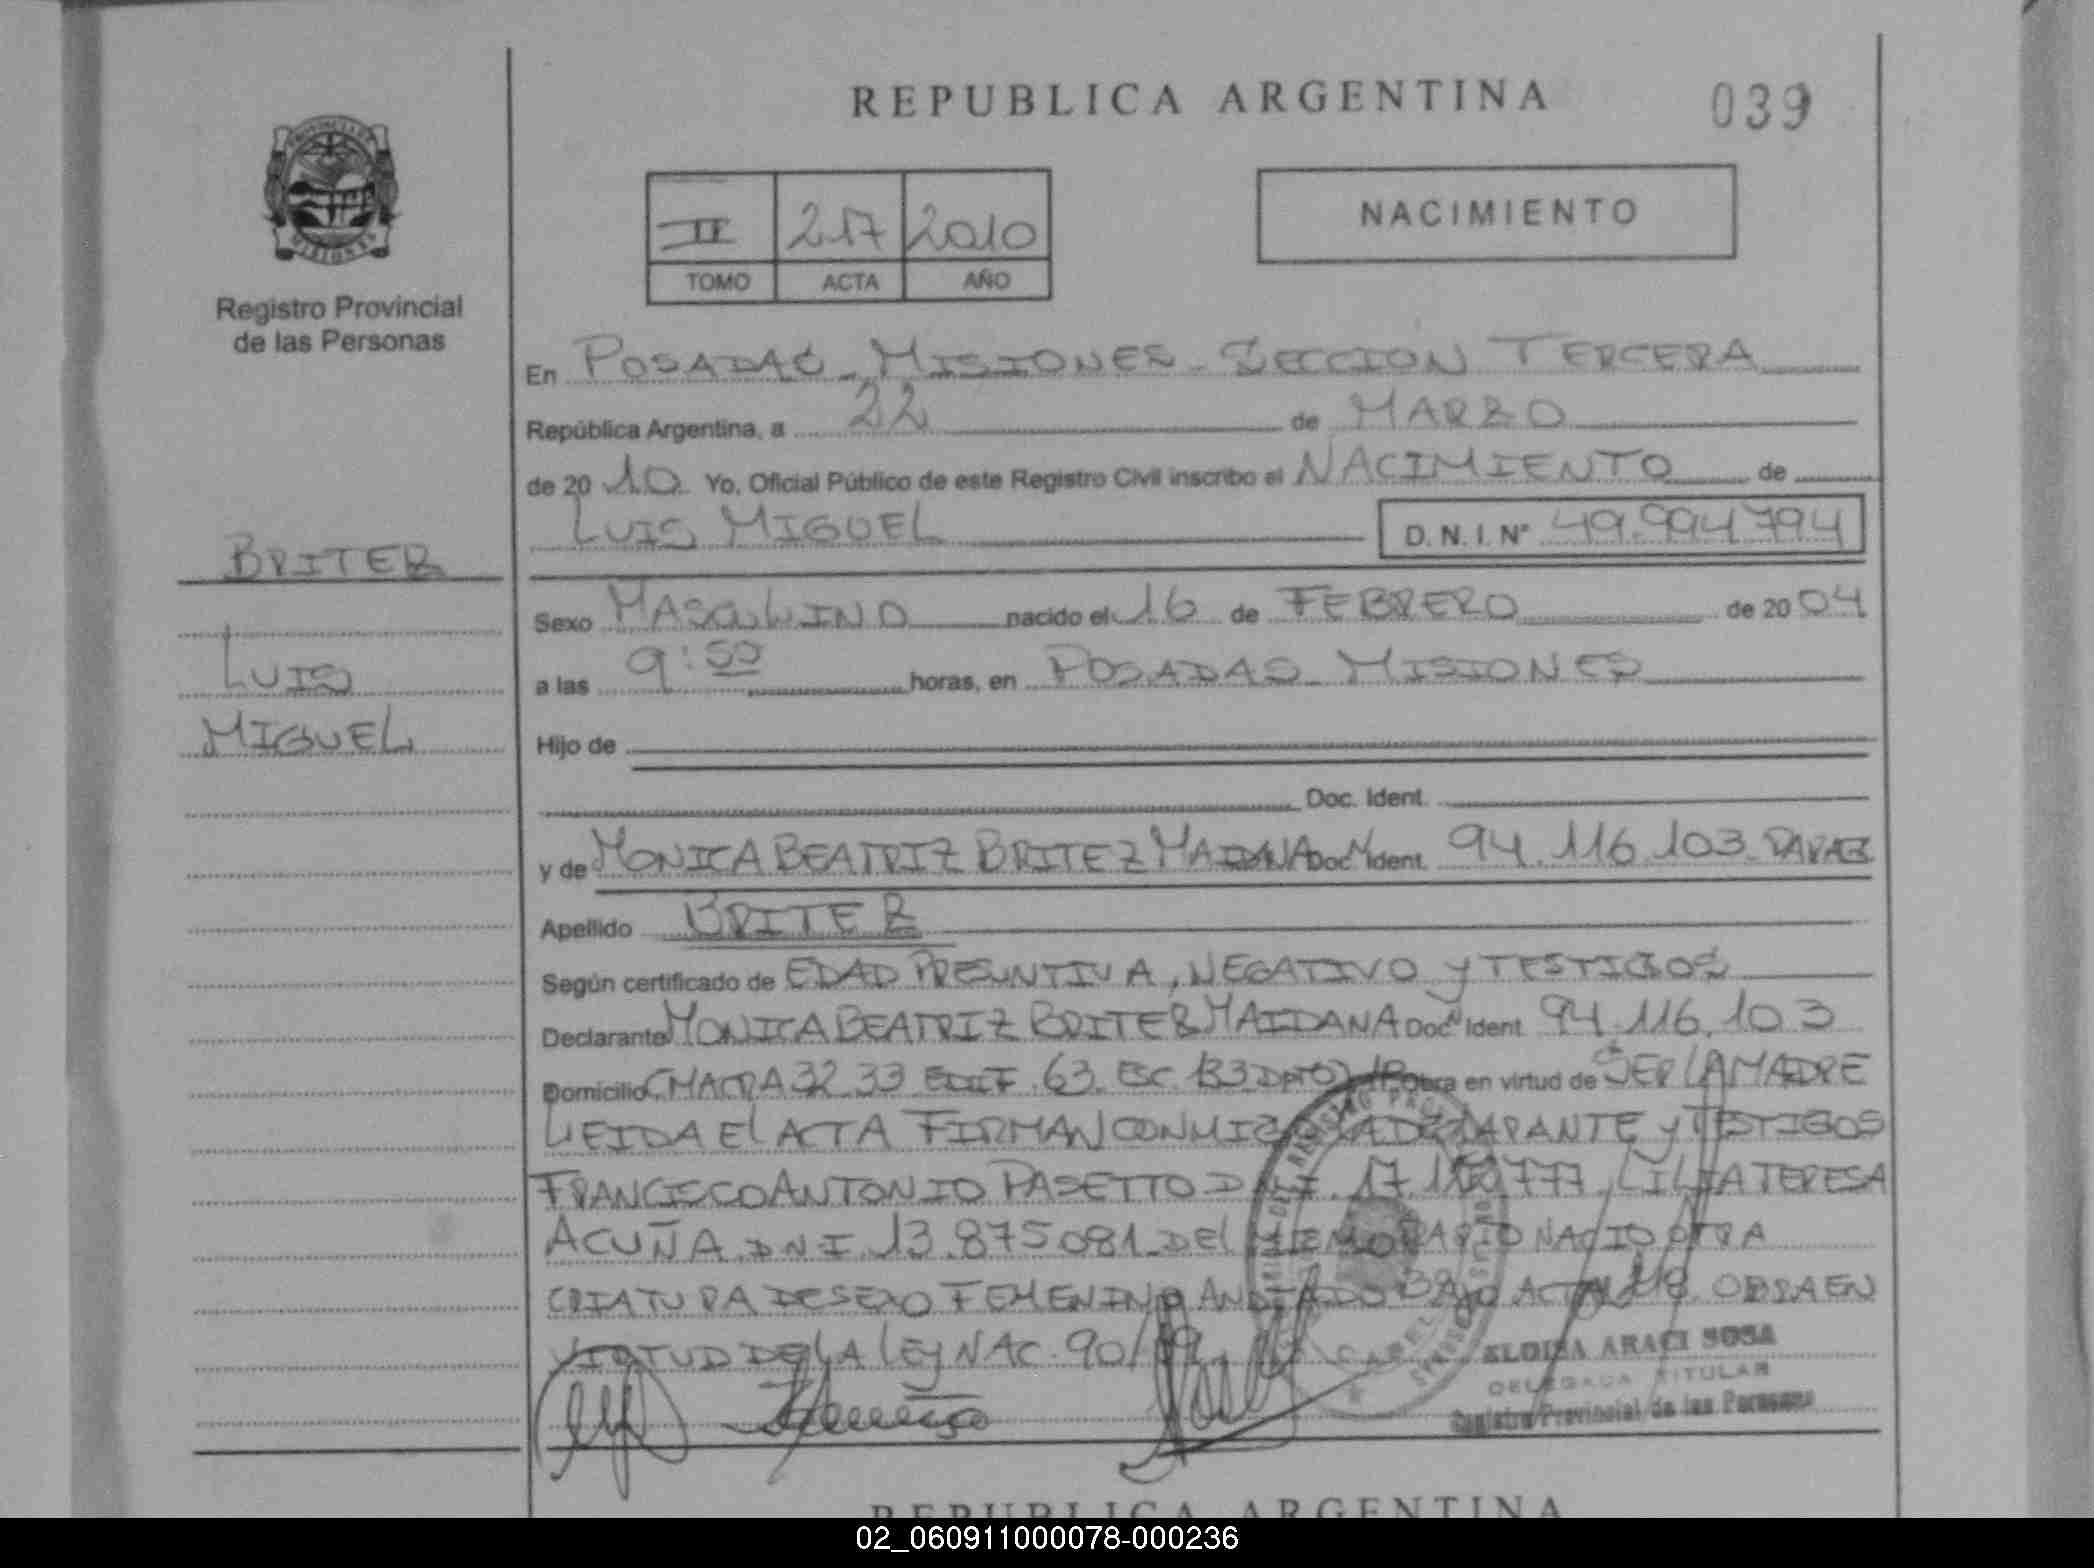 REPUBLICA ARGENTINA
039
PROVINCIA DE
MISIONES
Registro Provincial
de las Personas
II 217 2010
TOMO ACTA AÑO
NACIMIENTO
En POSADAS - MISIONES - SECCION TERCERA
República Argentina, a 22 de MARZO
de 20 10 Yo, Oficial Público de este Registro Civil inscribo el NACIMIENTO de
LUIS MIGUEL D. N. I. Nº 49.994794
BRITEZ
LUIS
MIGUEL
Sexo MASCULINO nacido el 16 de FEBRERO de 20 04
a las 9:50 horas, en POSADAS MISIONES
Hijo de
Doc. Ident.
y de MONICA BEATRIZ BRITEZ MAIDANA Doc. Ident. 94.116.103
Apellido BRITEZ
Según certificado de EDAD PRESUNTIVA, NEGATIVO y TESTIGOS
Declarante MONICA BEATRIZ BRITEZ MAIDANA Doc. Ident. 94.116.103
Domicilio CHACRA 32 33 EDIF. 63. ESC. 133 DPTO Obra en virtud de SER LA MADRE
LEIDA El ACTA FIRMAN CONMIGO LA DECLARANTE y TESTIGOS
FRANCISCO ANTONIO PASETTO D.N.I. 777, LILIA TERESA
ACUÑA DNI 13.875081 DEL MISMO PARTO NACIO OTRA
CRIATURA DE SEXO FEMENINO ANOTADO BAJO ACTA 218. OBRA EN
VIRTUD DE LA LEY NAC. 90/
ELOISA ARACI SOSA
DELEGADA TITULAR
Registro Provincial de las Personas
REPUBLICA ARGENTINA
02_060911000078-000236